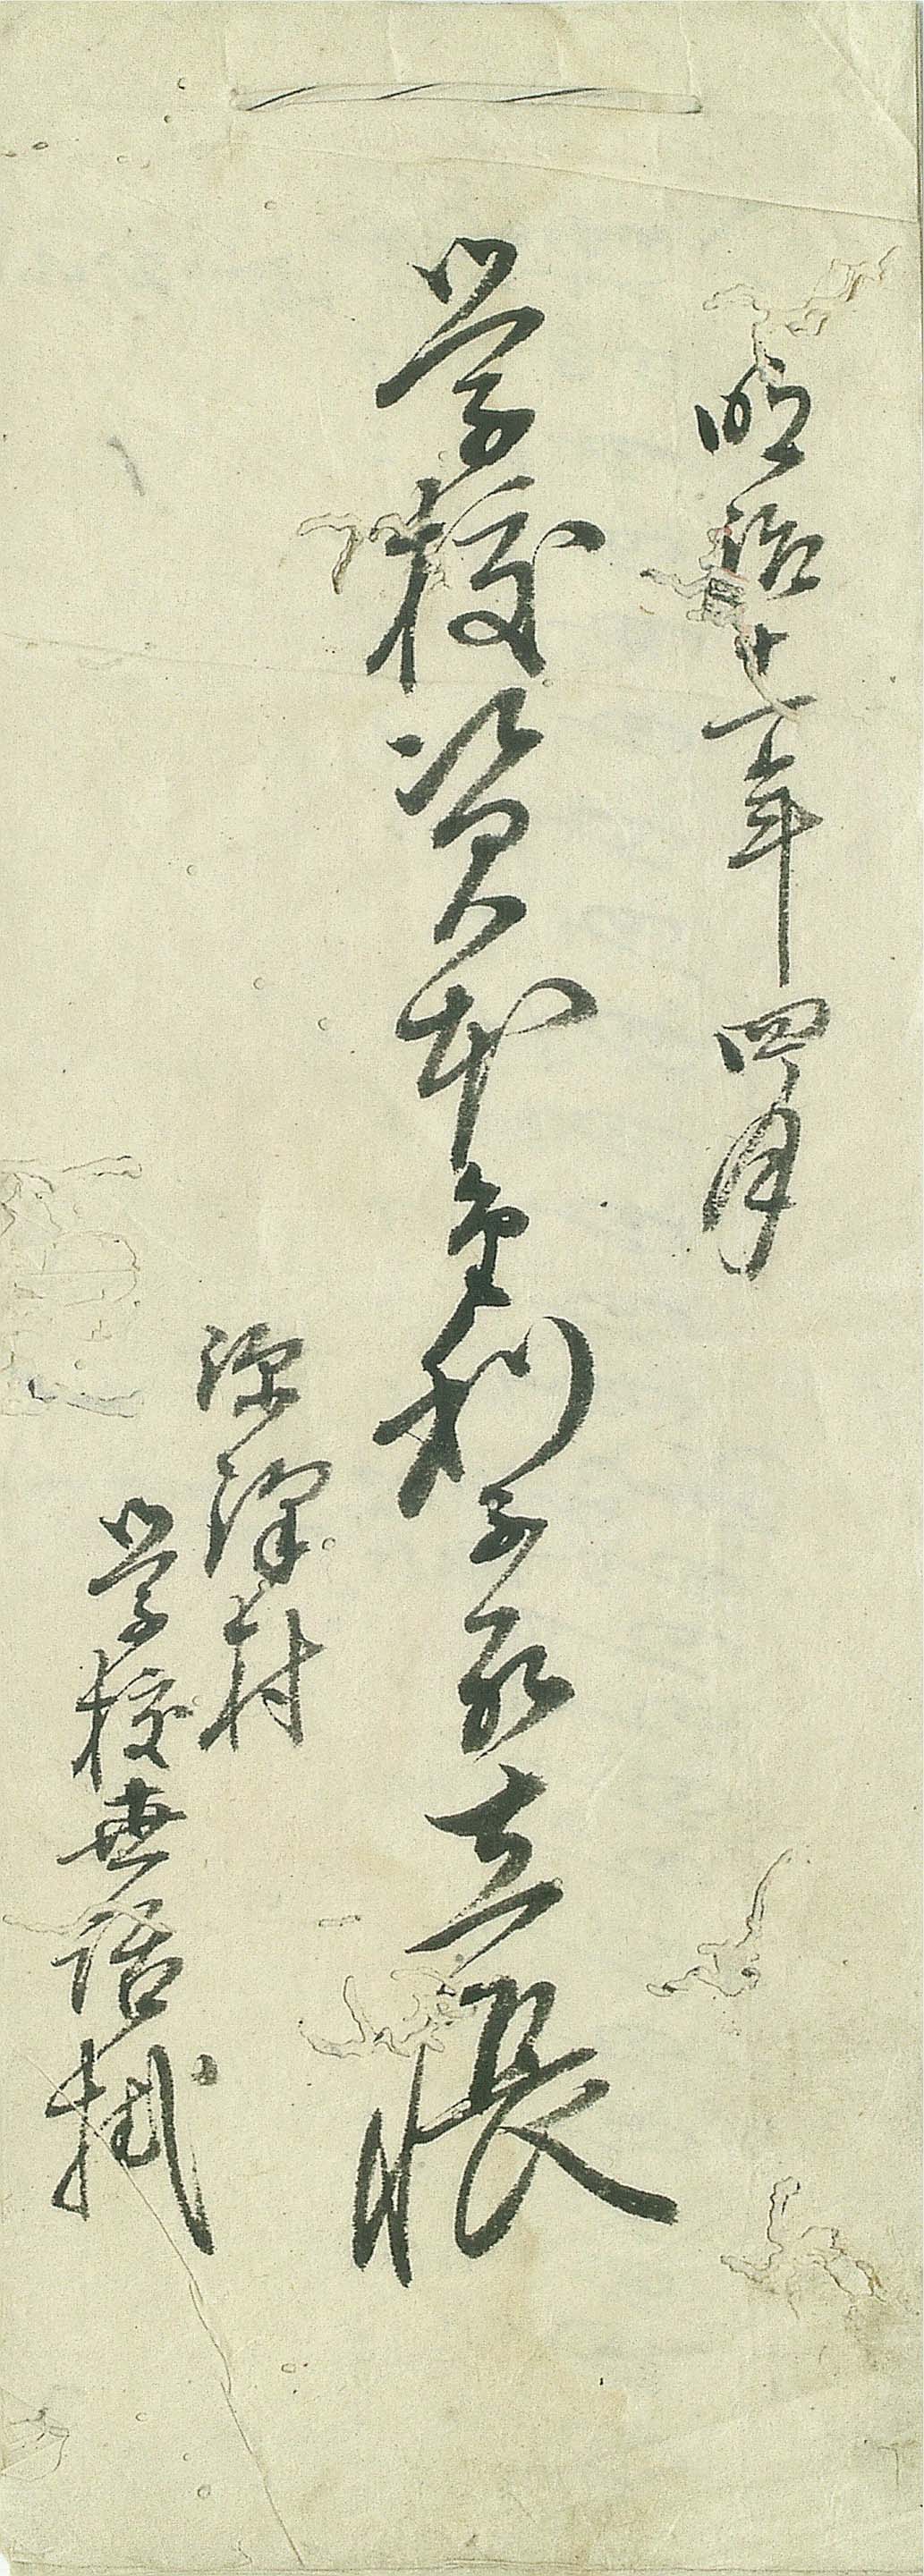 明治十一年四月
学校資本金利子取立帳
深澤村
学校世話掛